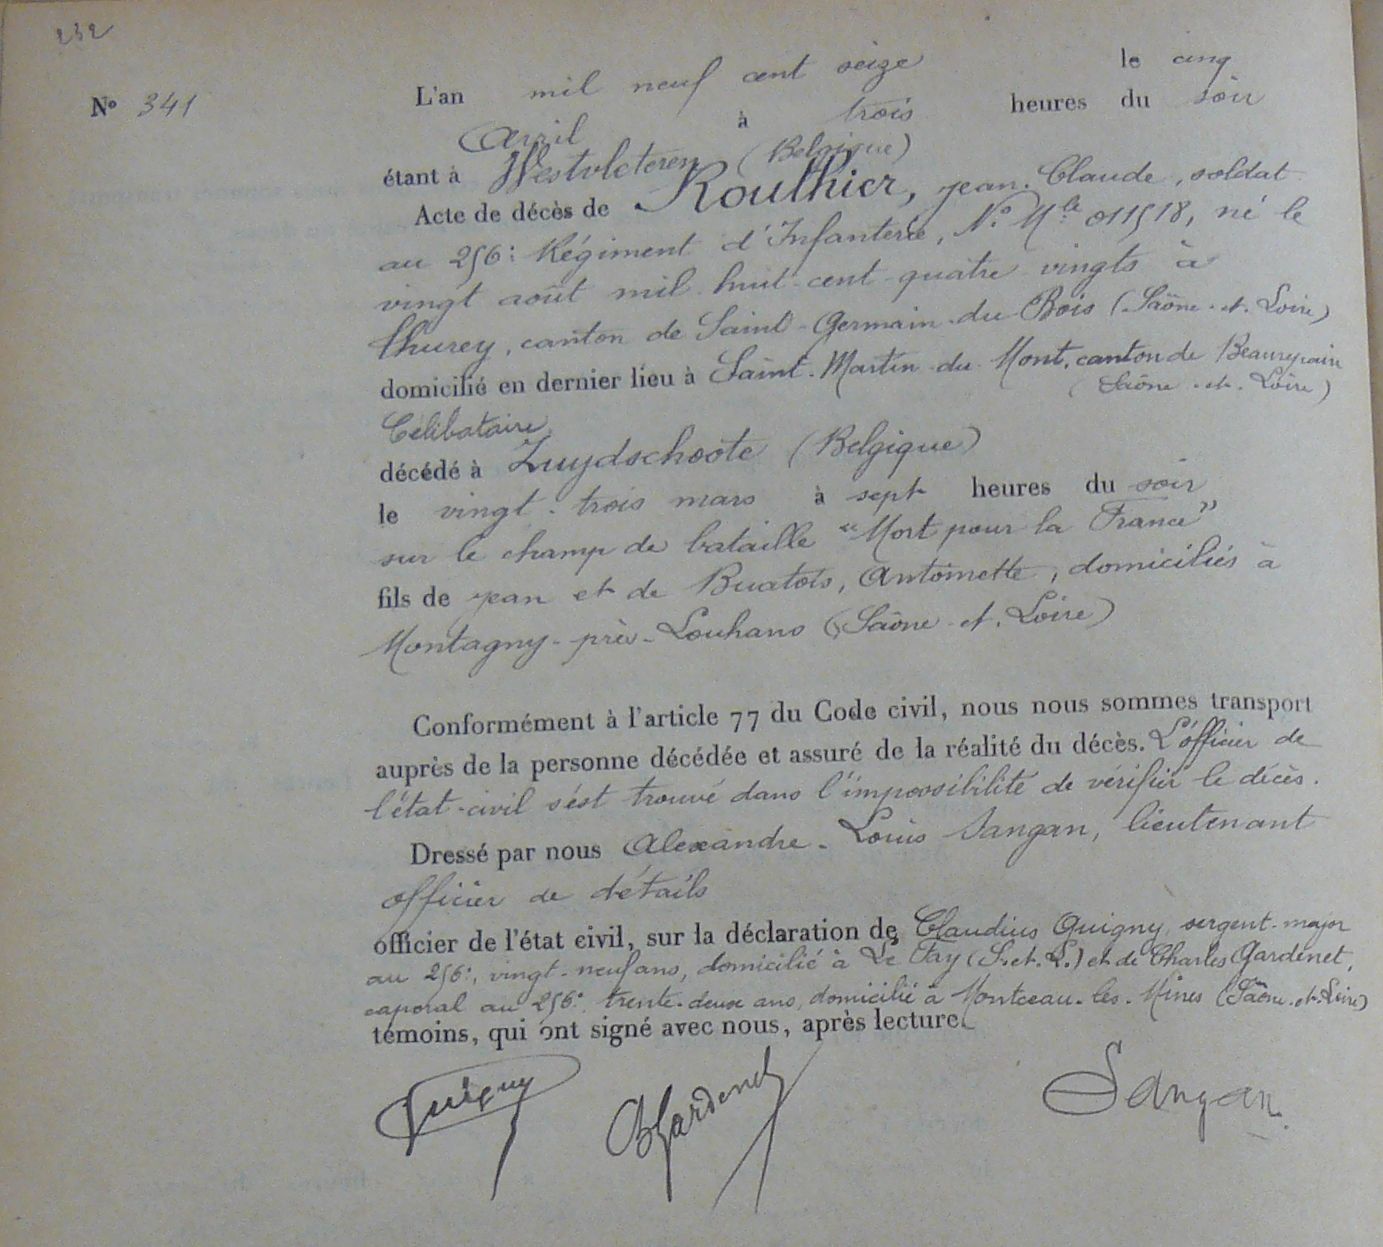 232
L'an mil neuf cent seize le cinq
N° 341
Avril à trois heures du soir
étant à Westvleteren (Belgique)
Acte de décès de Roulhier, Jean-Claude, soldat
au 256e Régiment d'Infanterie, N° Mle 011518, né le
vingt août mil huit-cent-quatre-vingts à
Thurey, canton de Saint-Germain-du-Bois (Saône-et-Loire)
domicilié en dernier lieu à Saint-Martin-du-Mont, canton de Beaurepaire
(Saône-et-Loire)
Célibataire
décédé à Zuydschoote (Belgique)
le vingt-trois mars à sept heures du soir
sur le champ de bataille "Mort pour la France"
fils de Jean et de Buatois, Antoinette, domiciliés à
Montagny-près-Louhans (Saône-et-Loire)
Conformément à l'article 77 du Code civil, nous nous sommes transport
auprès de la personne décédée et assuré de la réalité du décès. L'officier de
l'état-civil s'est trouvé dans l'impossibilité de vérifier le décès.
Dressé par nous Alexandre-Louis Sangan, lieutenant
officier de détails
officier de l'état civil, sur la déclaration de Claudius Guigny, sergent-major
au 256e, vingt-neuf ans, domicilié à Le Fay (S.et.L.) et de Charles Gardenet,
caporal au 256e trente-deux ans, domicilié à Montceau-les-Mines (Saône-et-Loire)
témoins, qui ont signé avec nous, après lecture.
Guigny ChGardenet Sangan